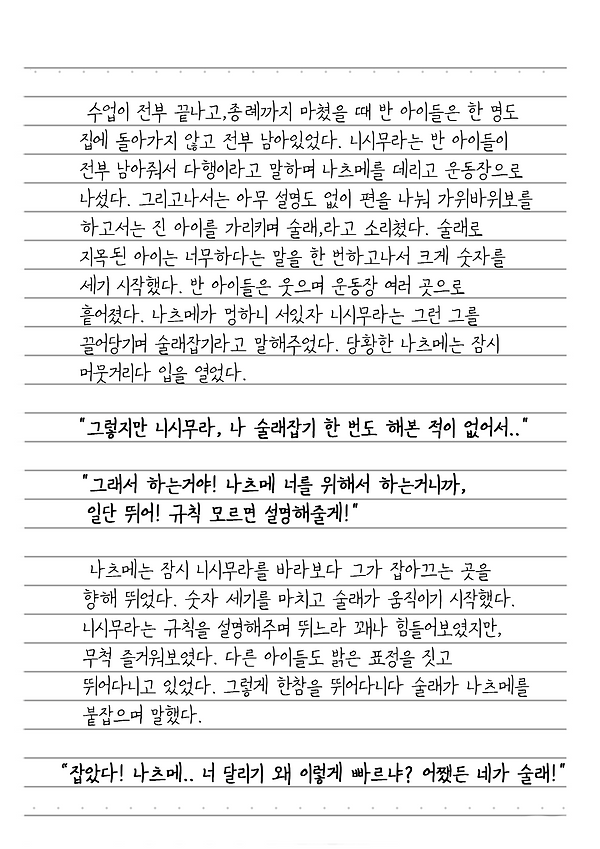 수업이 전부 끝나고,종례까지 마쳤을 때 반 아이들은 한 명도
집에 돌아가지 않고 전부 남아있었다. 니시무라는 반 아이들이
전부 남아줘서 다행이라고 말하며 나츠메를 데리고 운동장으로
나섰다. 그리고나서는 아무 설명도 없이 편을 나눠 가위바위보를
하고서는 진 아이를 가리키며 술래,라고 소리쳤다. 술래로
지목된 아이는 너무하다는 말을 한 번하고나서 크게 숫자를
세기 시작했다. 반 아이들은 웃으며 운동장 여러 곳으로
흩어졌다. 나츠메가 멍하니 서있자 니시무라는 그런 그를
끌어당기며 술래잡기라고 말해주었다. 당황한 나츠메는 잠시
머뭇거리다 입을 열었다.
"그렇지만 니시무라, 나 술래잡기 한 번도 해본 적이 없어서.."
"그래서 하는거야! 나츠메 너를 위해서 하는거니까,
일단 뛰어! 규칙 모르면 설명해줄게!"
나츠메는 잠시 니시무라를 바라보다 그가 잡아끄는 곳을
향해 뛰었다. 숫자 세기를 마치고 술래가 움직이기 시작했다.
니시무라는 규칙을 설명해주며 뛰느라 꽤나 힘들어보였지만,
무척 즐거워보였다. 다른 아이들도 밝은 표정을 짓고
뛰어다니고 있었다. 그렇게 한참을 뛰어다니다 술래가 나츠메를
붙잡으며 말했다.
"잡았다! 나츠메.. 너 달리기 왜 이렇게 빠르냐? 어쨌든 네가 술래!"